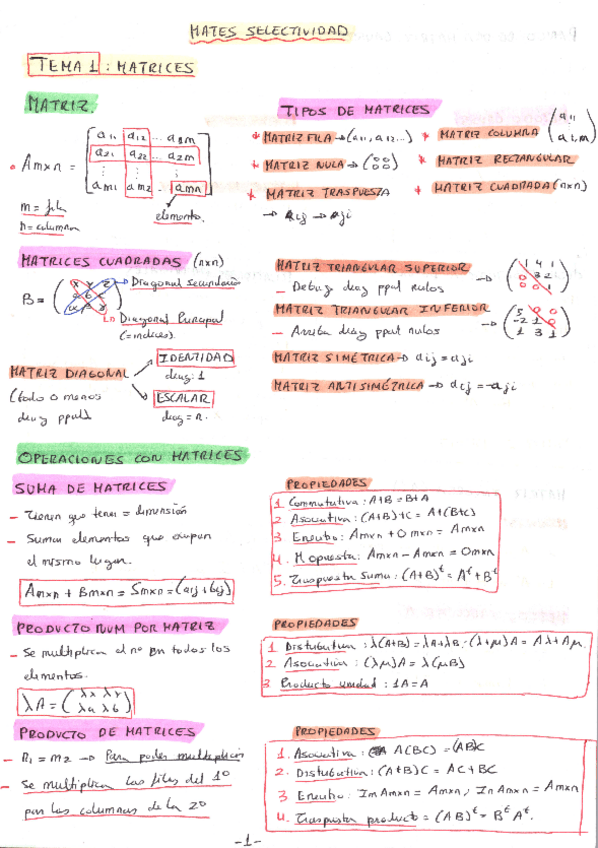 MATES SELECTIVIDAD
TEMA 1 : MATRICES
MATRIZ.
Amxn = [a11 a12 ... a2m
a21 a22 ... a2m
am1 am2 ... amn]
m = fila
n = columna
elemento.
TIPOS DE MATRICES
* MATRIZ FILA → (a11, a12...)
* MATRIZ COLUMNA (a11
a2,m)
* MATRIZ NULA → (0 0
0 0)
* MATRIZ RECTANGULAR
* MATRIZ TRASPUESTA
→ aij → aji
* MATRIZ CUADRADA (nxn)
MATRICES CUADRADAS (nxn)
B =
Diagonal secundario
Diagonal Principal
(=indices).
MATRIZ DIAGONAL
(todo 0 menos
diag ppal)
IDENTIDAD
diag: 1
ESCALAR
diag = n.
MATRIZ TRIANGULAR SUPERIOR
- Debajo diag ppal nulos → (1 4 1
0 3 2
0 0 1)
MATRIZ TRIANGULAR INFERIOR
- Arriba diag ppal nulos → (5 0 0
-2 1 0
1 3 1)
MATRIZ SIMÉTRICA → aij = aji
MATRIZ ANTISIMÉTRICA → aij = -aji
OPERACIONES CON MATRICES
SUMA DE MATRICES
- Tienen que tener = dimensión
- Suman elementos que ocupan
el mismo lugar.
Amxn + Bmxn = Smxn = (aij + bij)
PROPIEDADES
1 Conmutativa : A+B = B+A
2 Asociativa : (A+B)+C = A+(B+C)
3 Eneutro : Amxn + 0mxn = Amxn
4. M opuesta : Amxn - Amxn = 0mxn
5. Traspuesta Suma : (A+B)t = At + Bt
PRODUCTO NUM POR MATRIZ
- Se multiplica el nº en todos los
elementos.
λA = (λx λy
λa λb)
PROPIEDADES
1 Distributiva : λ(A+B) = λA+λB ; (λ+μ)A = Aλ+Aμ.
2 Asociativa : (λμ)A = λ(μB)
3 Producto unidad : 1A = A
PRODUCTO DE MATRICES
- n1 = m2 → Para poder multiplicar
- Se multiplica las filas del 1º
por las columnas de la 2º
PROPIEDADES
1. Asociativa : A(BC) = (AB)C
2. Distributiva : (A+B)C = AC+BC
3 Eneutro : Im Amxn = Amxn ; In Amxn = Amxn
4. Traspuesta producto = (AB)t = Bt At.
-1-